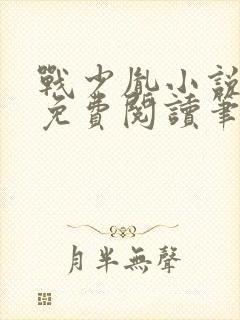 戰少胤小說
免費閱讀筆
月半無聲